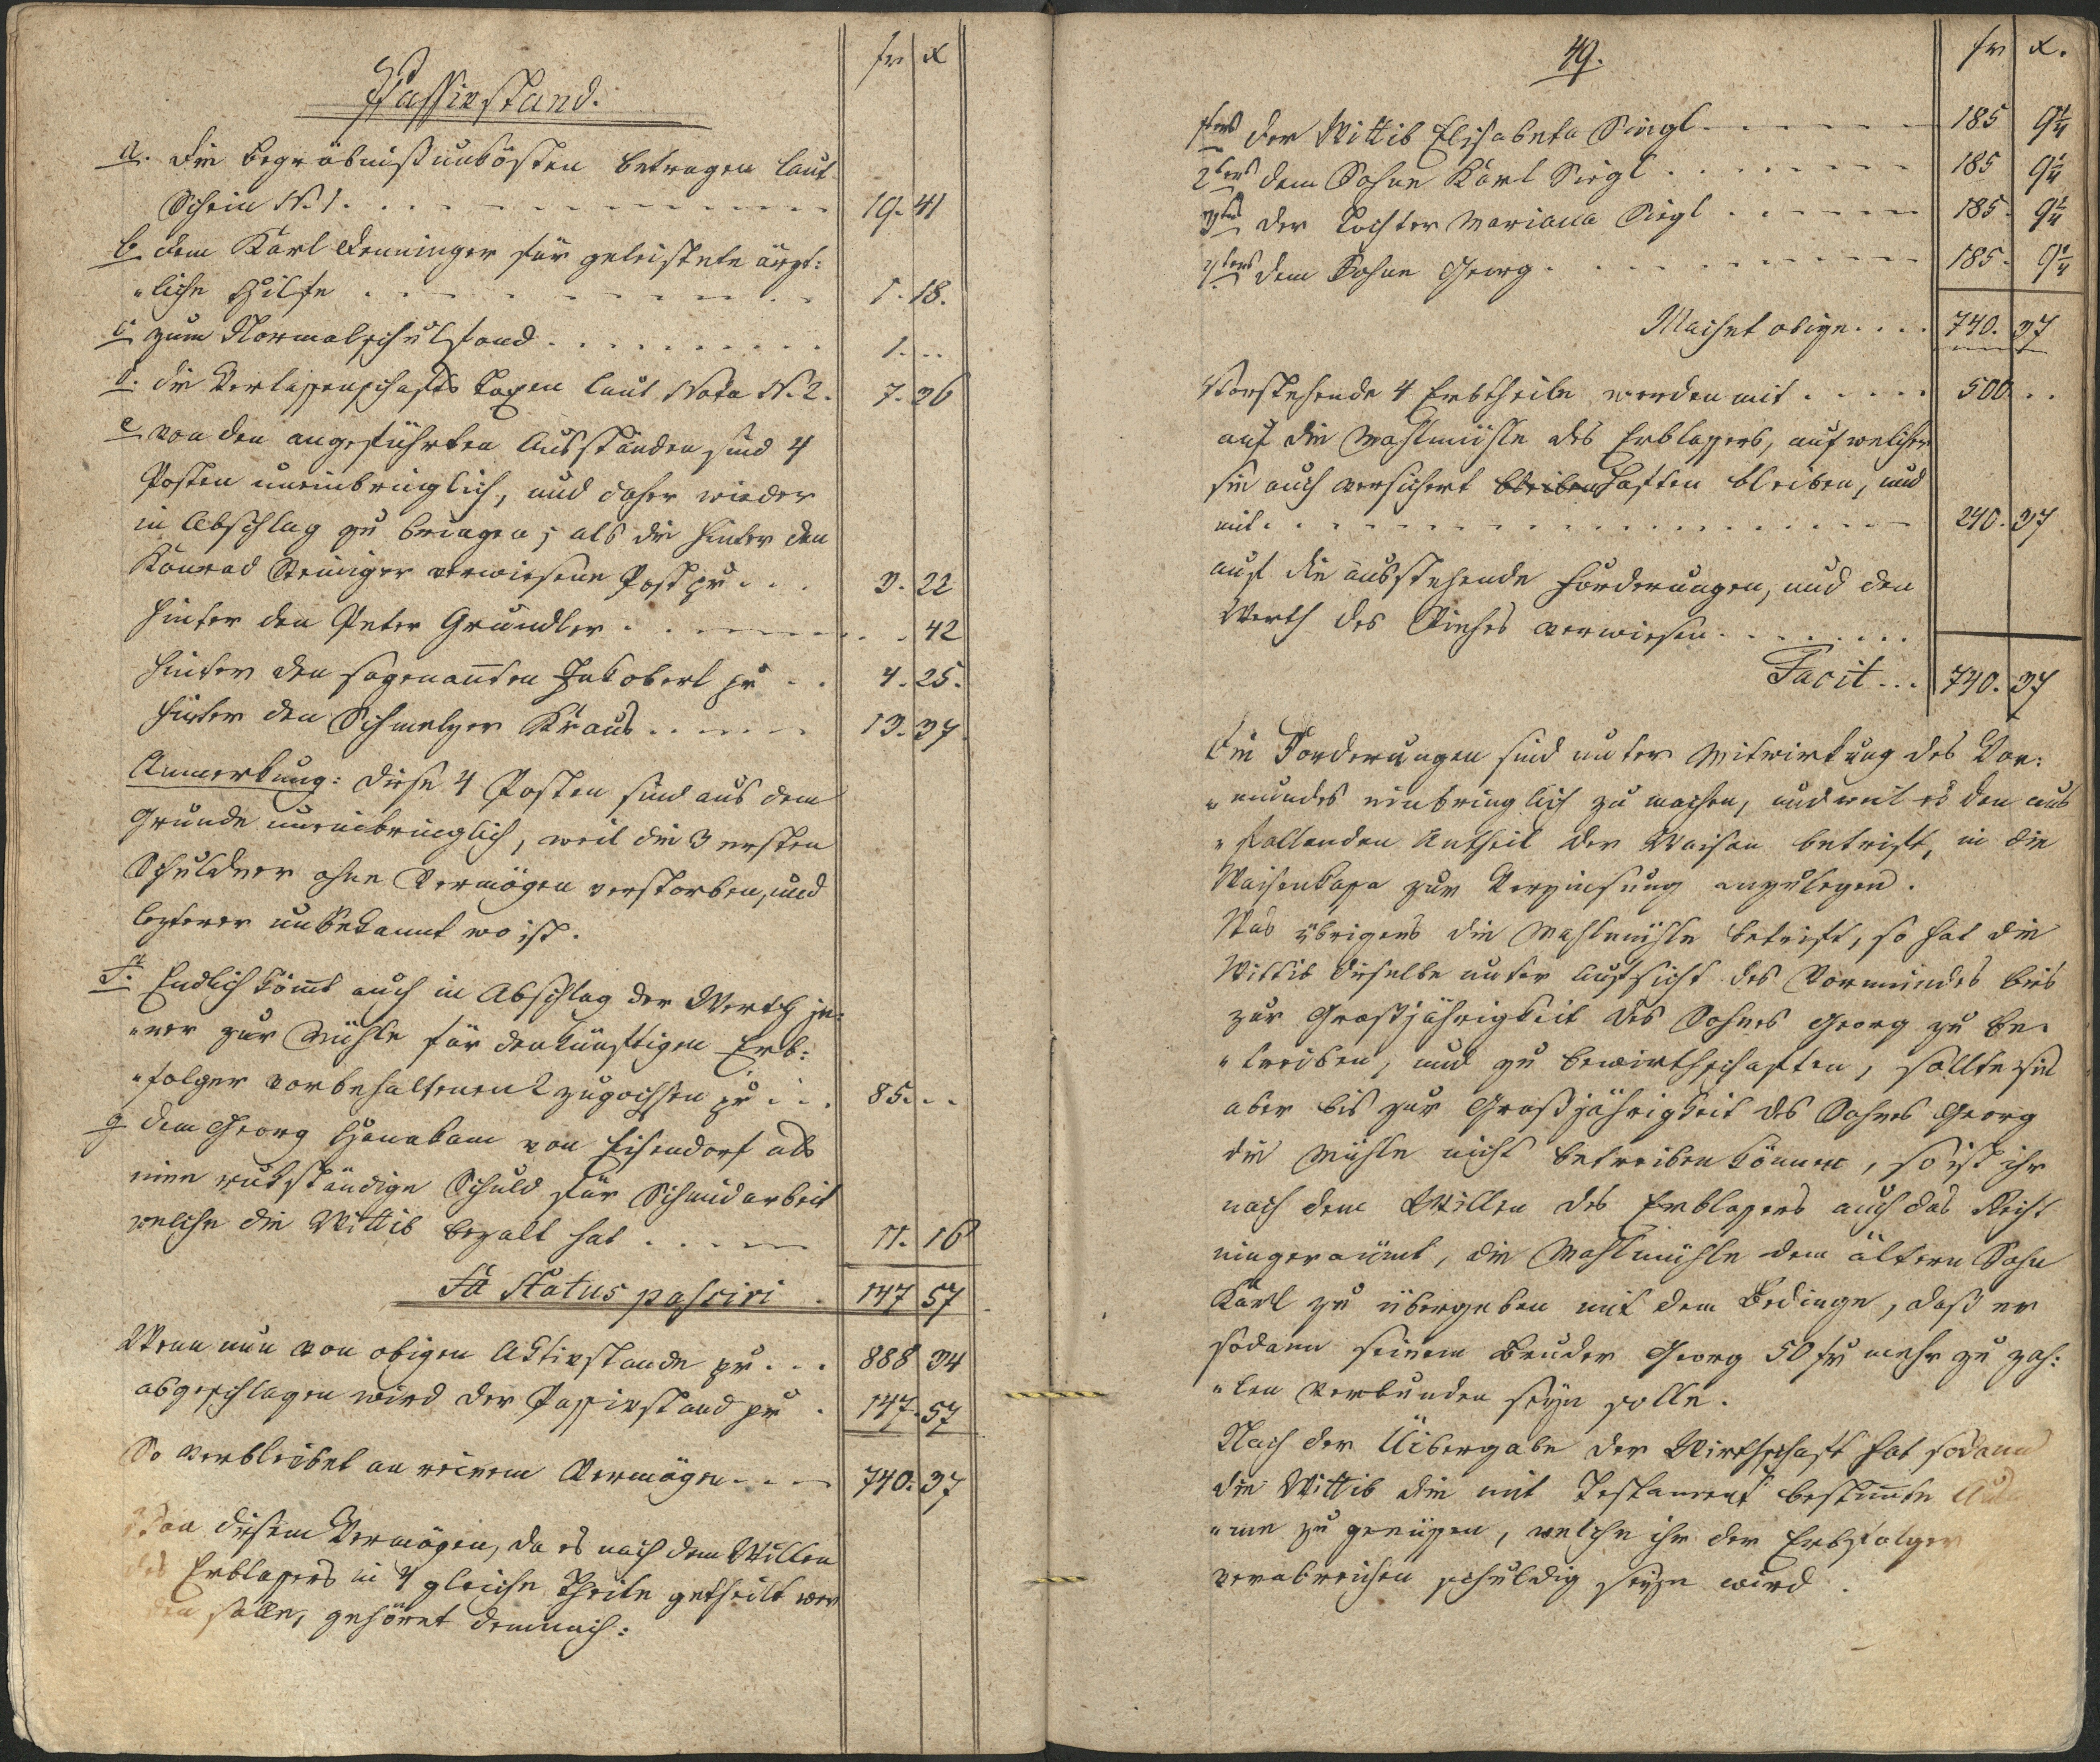 fr x
Passivstand.
a. die Begräbnißunkösten betragen laut
Schein N. 1. 19. 41
b dem Karl Denninger für geleistete ärzt:
"liche Hilfe 1. 18.
c zum Normalschulfond 1. ..
d. die Verlassenschafts Taxen laut Nota N. 2. 7. 36
e von den angeführten Ausständen sind 4
Posten uneinbringlich, und daher wieder
in Abschlag zu bringen; als die hinter den
Konrad Steiniger verwiesene Post pr 3. 22
hinter den Peter Gründler . 42
hinter den sogenannten Jakoberl pr 4. 25.
hinter den Schmelzer Kraus 13. 37
Anmerkung: diese 4 Posten sind aus dem
Grunde uneinbringlich, weil die 3 ersten
Schuldner ohne Vermögen verstorben, und
lezterer unbekannt wo ist.
f. Endlich kömt auch in Abschlag der Werth je:
"ner zur Mühle für den künftigen Erb:
"folger vorbehaltenen 2 Zugochsen pr 85. ..
g dem Georg Hanakam von Eisendorf als
eine rukständige Schuld für Schmidarbeit
welche die Wittib bezalt hat 11. 16
Sa Status passivi 147 57
Wenn nun von obigen Aktivstande pr 888 34
abgeschlagen wird der Passivstand pr 147. 57
So verbleibet an reinem Vermögen 740. 37
Von diesem Vermögen, da es nach dem Willen
des Erblassers in 4 gleiche Theile getheilt wer
den solle, gehöret demnach:
49.
fr x.
1tens der Wittib Elisabeta Siegl 185 9 1/4
2tens dem Sohne Karl Siegl 185 9 1/4
3tens der Tochter Mariana Siegl 185. 9 1/4
4tens dem Sohne Georg 185. 9 1/4
Machet obige 740. 37
Vorstehende 4 Erbtheile werden mit 500 ..
auf die Mahlmühle des Erblassers, auf welcher
sie auch versichert bleiben haften bleiben, und
mit 240. 37
auf die ausstehende Forderungen, und den
Werth des Viehes verwiesen
Facit 740. 37
Die Forderungen sind unter Mitwirkung des Vor:
"mundes einbringlich zu machen, und weil es den aus
"fallenden Antheil der Waisen betrift, in die
Waisenkassa zur Verzinsung anzulegen.
Was übrigens die Mahlmühle betrift, so hat die
Wittib dieselbe unter Aufsicht des Vormundes bis
zur Großjährigkeit des Sohnes Georg zu be:
"treiben, und zu bewirthschaften, sollte sie
aber bis zur Großjährigkeit des Sohnes Georg
die Mühle nicht betreiben können, so ist ihr
nach dem Willen des Erblassers auch das Recht
eingeraümt, die Mahlmühle dem ältern Sohn
Karl zu übergeben mit dem Bedinge, daß er
sodann seinem Bruder Georg 50 fr mehr zu zah:
"len verbunden seyn solle.
Nach der Uibergabe der Wirthschaft hat sodann
die Wittib die mit Testament bestimte
zu genüßen, welche ihr der Erbsfolger
verabreichen schuldig seyn wird.